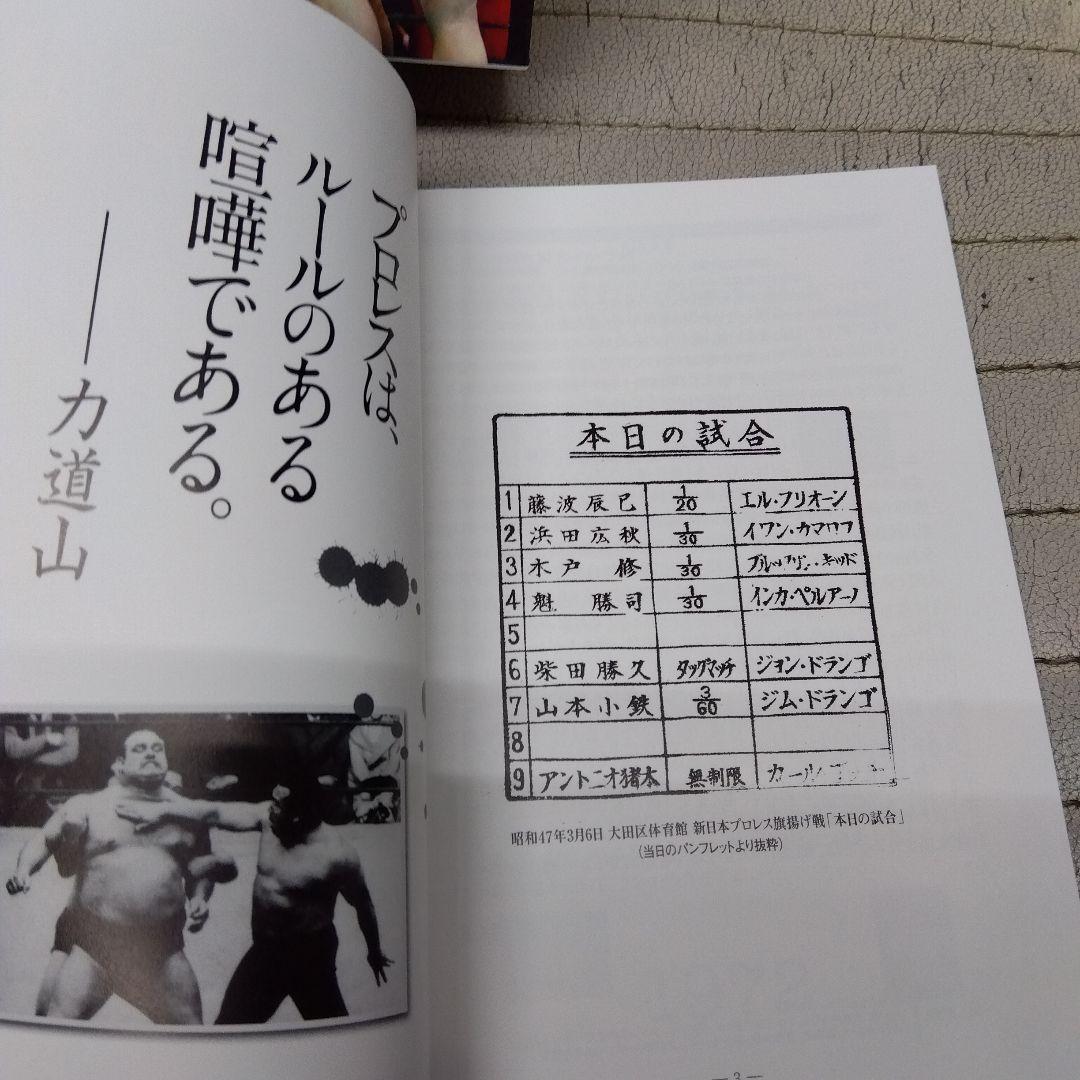 プロレスは、
ルールのある
喧嘩である。
――力道山
本日の試合
1 藤波辰巳 1/20 エル・フリオーン
2 浜田広秋 1/30 イワン・カマロフ
3 木戸 修 1/30 ブルックリン・キッド
4 魁 勝司 1/30 インカ・ペルアーノ
5
6 柴田勝久 タッグマッチ ジョン・ドランゴ
7 山本小鉄 3/60 ジム・ドランゴ
8
9 アントニオ猪木 無制限 カール
昭和47年3月6日 大田区体育館 新日本プロレス旗揚げ戦「本日の試合」
(当日のパンフレットより抜粋)
― 3 ―